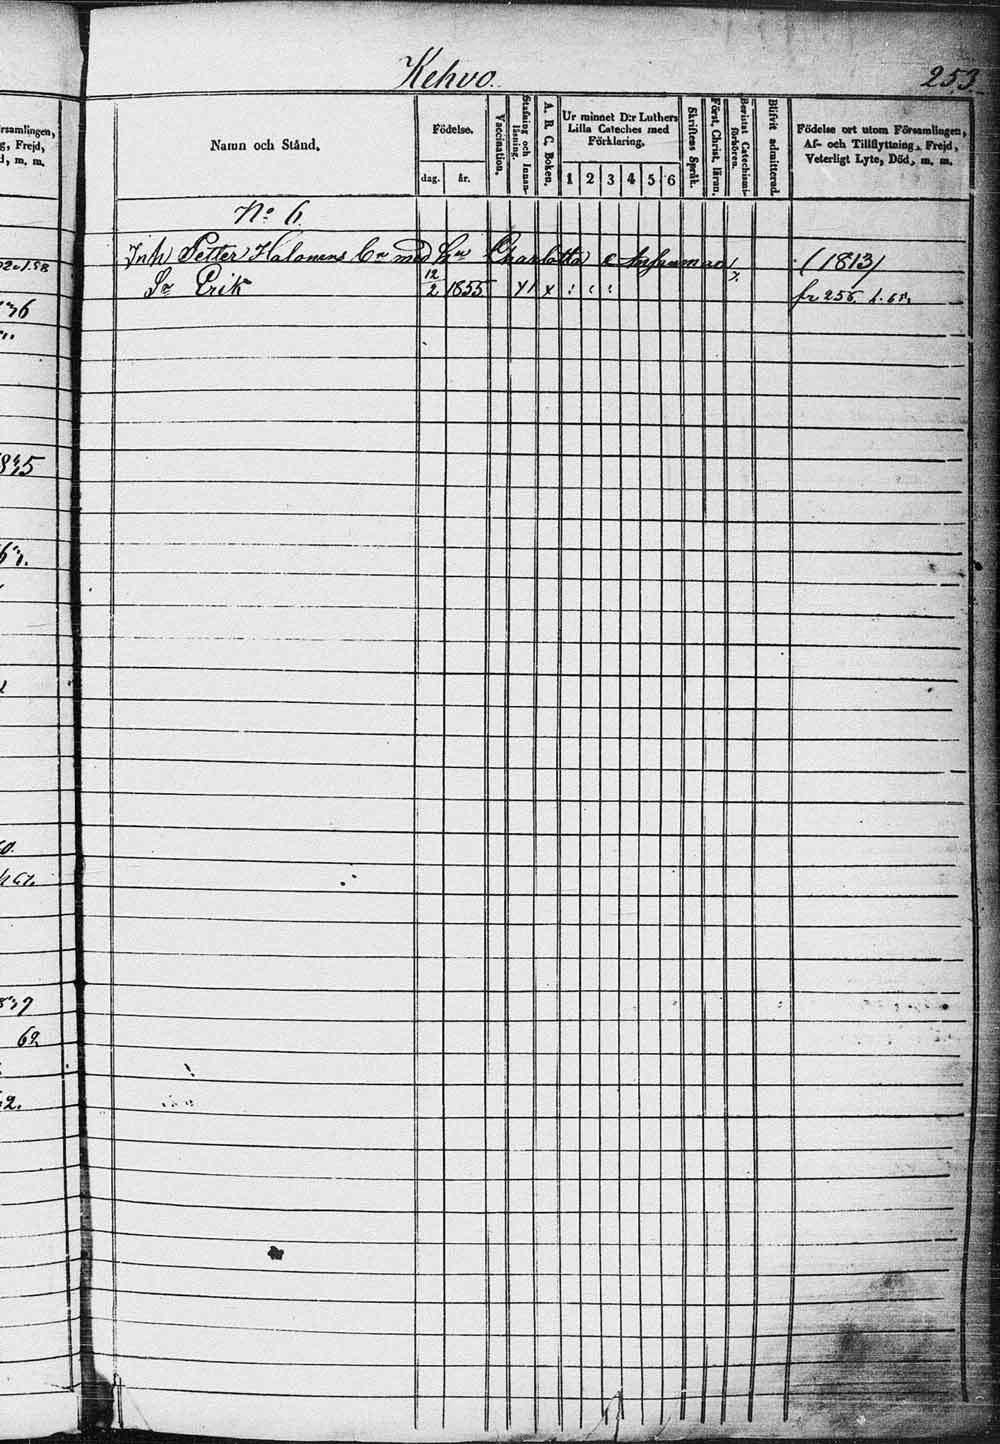 Kehvo.
253.
rsamlingen,
g, Frejd,
d, m. m.
Namn och Stånd.
Födelse.
dag. år.
Vaccination.
Stafning och Innanläsning.
A. B. C. Boken.
Ur minnet D:r Luthers
Lilla Cateches med
Förklaring,
1 2 3 4 5 6
Skriftens Språk.
Först. Christ. läran.
Bevistat Catechismiförhören.
Blifvit admitterad.
Födelse ort utom Församlingen,
Af- och Tillflyttning, Frejd,
Veterligt Lyte, Död, m. m.
No 6
Inh Petter Halonens med Hu Charlotta (1813)
Sr Erik 12/2 1855 fr 256
36
835
62